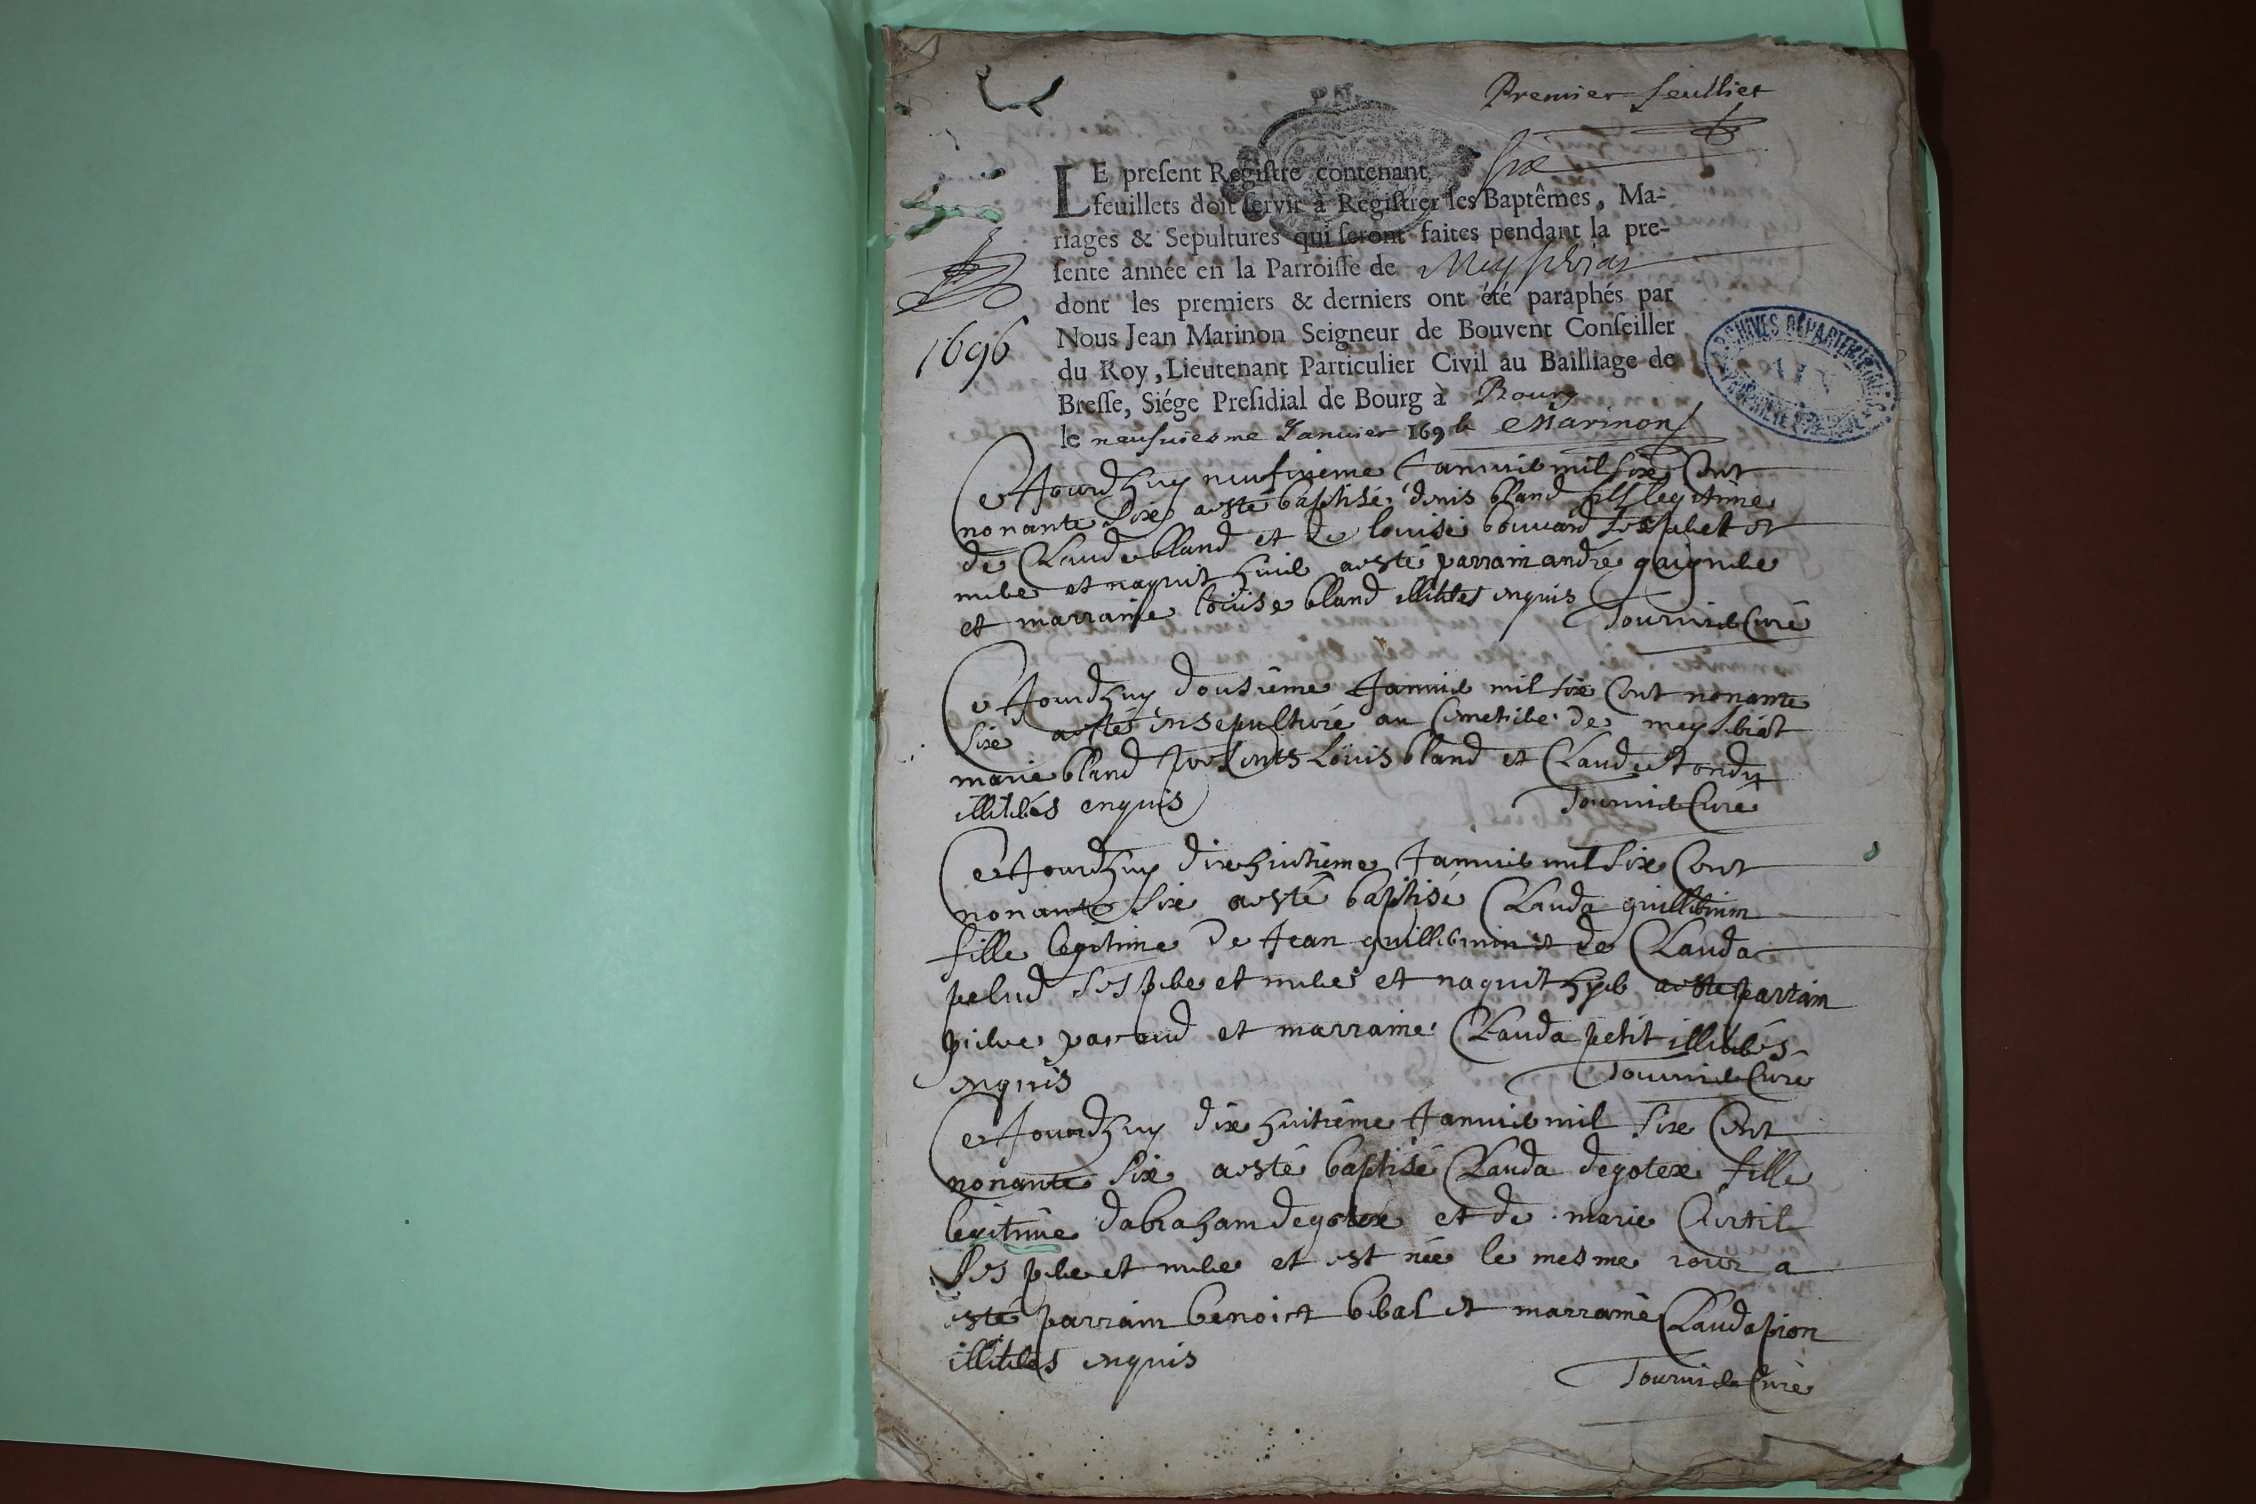 Premier feulliet
P.N.
six
LE preſent Regiſtre contenant
feuillets doit ſervir à Regiſtrer les Baptêmes, Ma-
riages & Sepultures qui ſeront faites pendant la pre-
ſente année en la Parroiſſe de
dont les premiers & derniers ont été paraphés par
1696
Nous Jean Marinon Seigneur de Bouvent Conſeiller
du Roy, Lieutenant Particulier Civil au Bailliage de
Breſſe, Siége Preſidial de Bourg à Bourg
le neufviesme Janvier 1696 Marinon
ARCHIVES DÉPARTEMENTALES
AIN
PROPRIÉTÉ PUBLIQUE
Ce Jourdhuy neufvieme Janvier mil six Cent
nonante six a esté baptisé denis bland fils legitime
de Claude bland et de louise bouvard ses pere et
mere et naquit hier a esté parrain andré
et marraine louise bland illiterés enquis
Tournier Curé
Ce Jourdhuy dousieme Janvier mil six Cent nonante
six a esté ensepulturé au Cimetiere de meysiriat
marie bland presents Louis bland et Claude Tondu
illiterés enquis
Tournier Curé
Ce Jourdhuy dixhuitieme Janvier mil six Cent
nonante six a esté baptisé Clauda guillermin
fille legitime de Jean guillermin et de Clauda
pelud ses pere et mere et naquit hyer a esté parrain
pierre et marraine Clauda petit illiterés
enquis
Tournier Curé
Ce Jourdhuy dix huitieme Janvier mil six Cent
nonante six a esté baptisé Clauda degotex fille
legitime dabraham degotex et de marie Curtil
ses pere et mere et est née le mesme jour a
esté parrain benoict beral et marraine Clauda pion
illiterés enquis
Tournier Curé